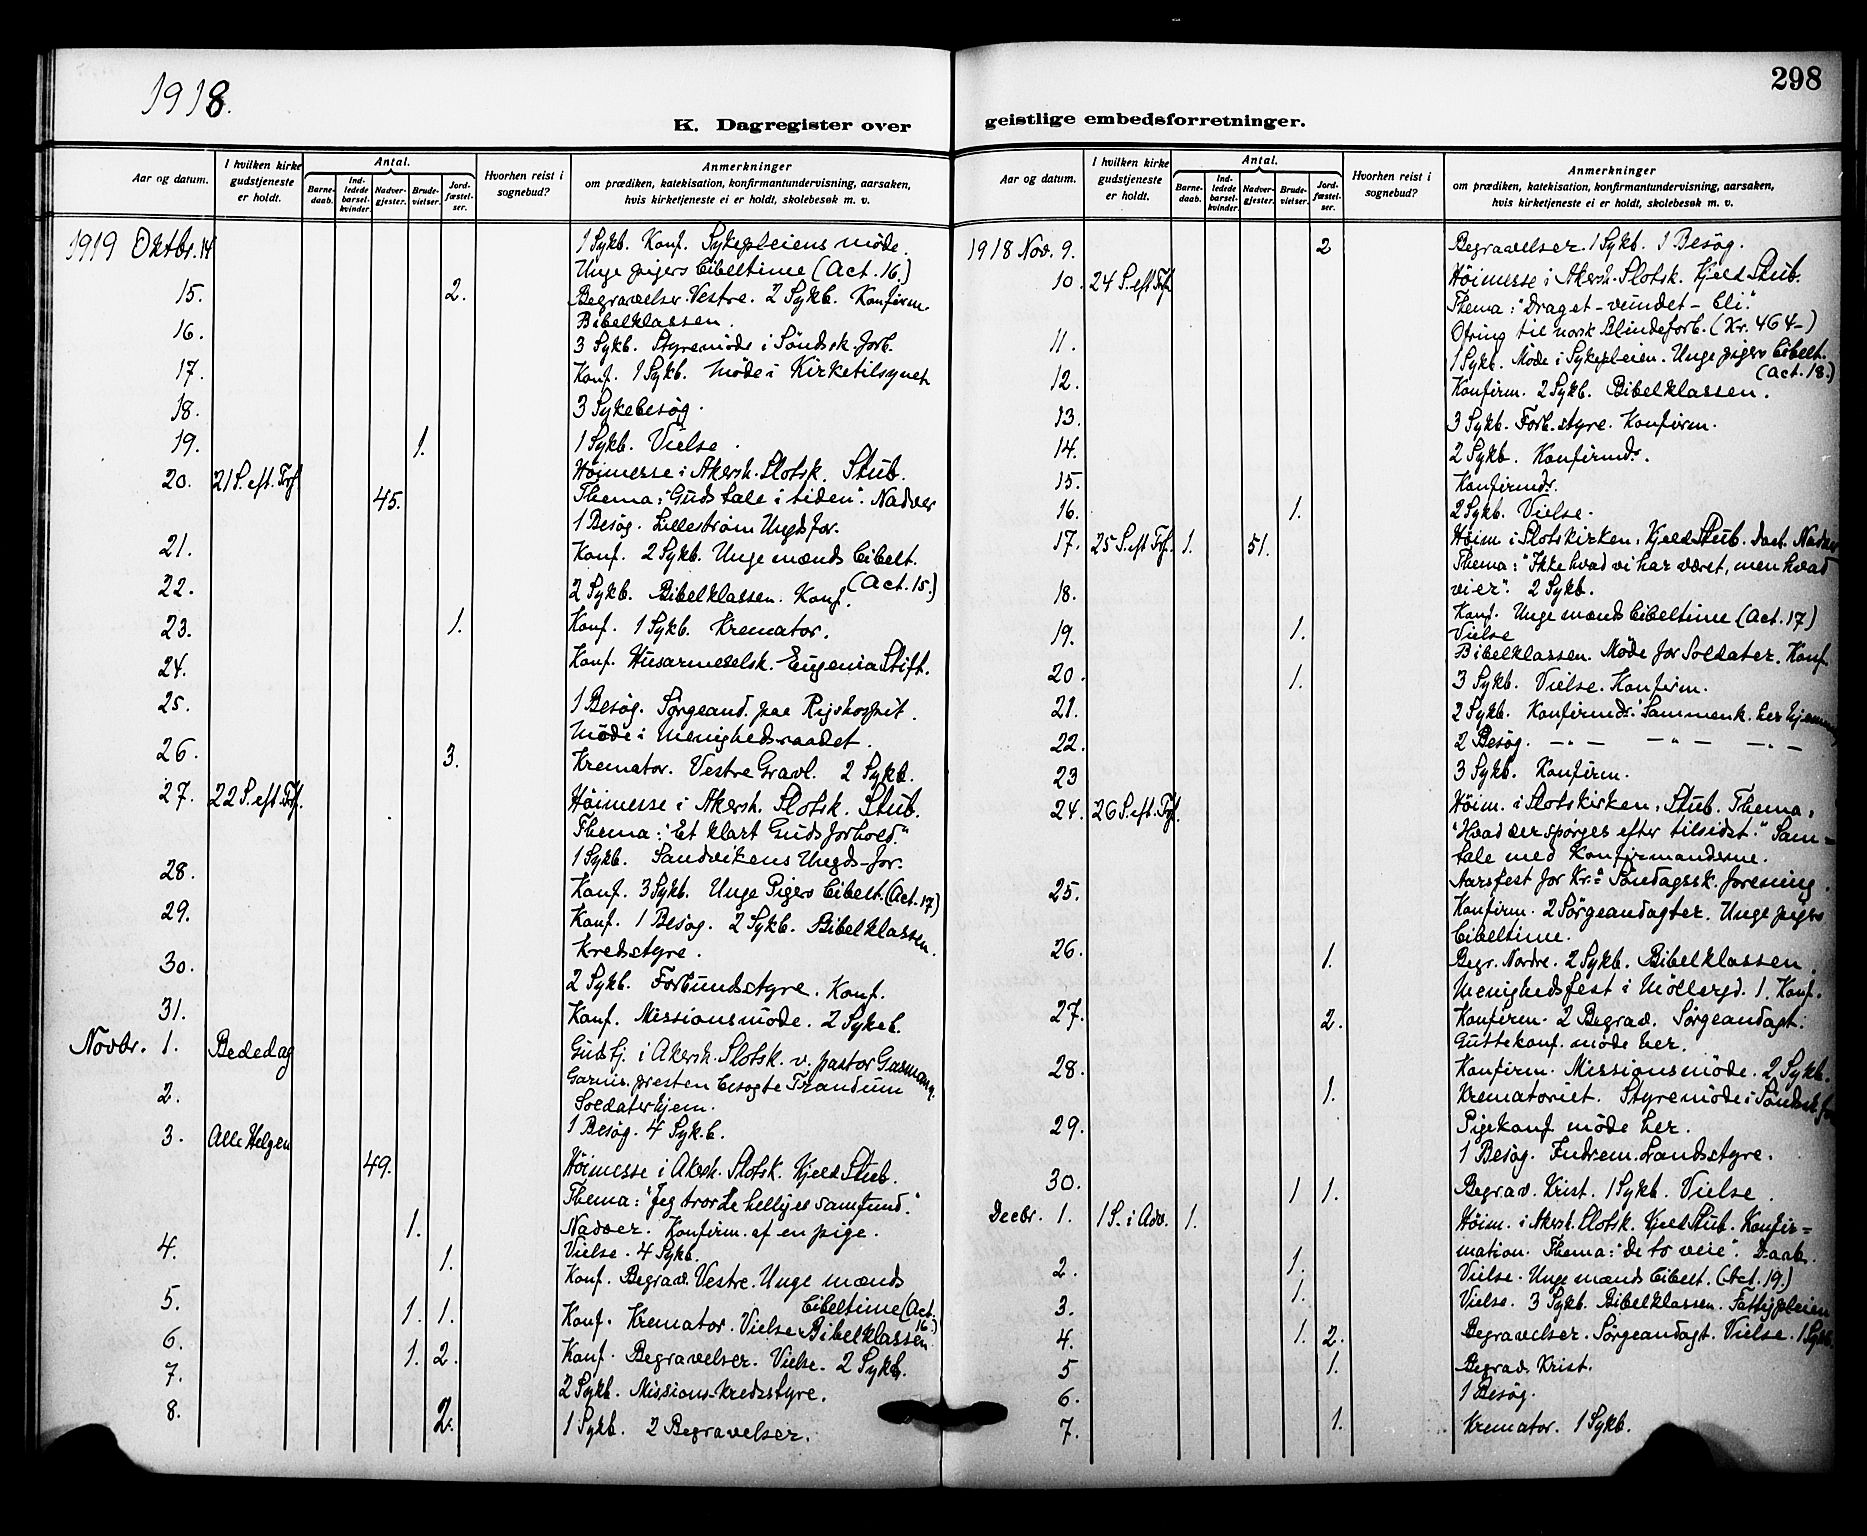 1918.
298
K. Dagregister over
geistlige embedsforretninger.
Aar og datum.
I hvilken kirke gudstjeneste er holdt.
Antal.
Barne-daab.
Ind-ledede barsel-kvinder.
Nadver-gjester.
Brude-vielser.
Jord-fæstel-ser.
Hvorhen reist i sognebud?
Anmerkninger
om prædiken, katekisation, konfirmantundervisning, aarsaken,
hvis kirketjeneste ei er holdt, skolebesøk m. v.
1919 Oktbr. 14 1 Sykb. Konf. Sykepleiens møde.
Unge pigers bibeltime (Act. 16.)
15. 2. Begravelser. Vestre. 2 Sykb. Konfirm.
Bibelklassen.
16. 3 Sykb. Styremøde i Söndsk. forb.
17. Konf. 1 Sykb. Møde i Kirketilsynet
18. 3 Sykebesøg.
19. 1. 1 Sykb. Vielse.
20. 21 S. eft. Tref. Höimesse i Akersh. Slotsk. Stub.
45. Thema: "Guds tale i tiden". Nadver
1 Besøg. Lillestrøm Ungdsfor.
21. Konf. 2 Sykb. Unge mænds bibelt.
(Act. 15.)
22. 2 Sykb. Bibelklassen. Konf.
23. 1. Konf. 1 Sykb. Kremator.
24. Konf. Husarmeselsk. Eugenia Stift.
25. 1 Besøg. Sørgeand. paa Rigshospit.
Møde i Menighedsraadet.
26. 3. Kremator. Vestre Gravl. 2 Sykb.
27. 22 S. eft. Tref. Höimesse i Akersh. Slotsk. Stub.
Thema: "Et klart Guds forhold."
1 Sykb. Sandvikens Ungds-for.
28. Konf. 3 Sykb. Unge Pigers bibelt. (Act. 17)
29. Konf. 1 Besøg. 2 Sykb. Bibelklassen.
Kredsstyre.
30. 2 Sykb. Forbundsstyre. Konf.
31. Konf. Missionsmøde. 2 Sykeb.
Novbr. 1. Bededag Gudstj. i Akersh. Slotsk. v. pastor
Garnis. presten besøgte Trandum
Soldaterhjem.
2. 1 Besøg. 4 Sykb.
3. Alle Helgen 49. Höimesse i Akersh. Slotsk. Kjeld Stub.
Thema: "Jeg tror de helliges samfund."
Nadver. Konfirm. af en pige.
1. Vielse. 4 Sykb.
4. 1. Konf. Begrav. Vestre. Unge mænds
bibeltime (Act. 16.)
5. 1. 1. Konf. Kremator. Vielse Bibelklassen
6. 1. 2. Konf. Begravelser. Vielse. 2 Sykb.
7. 2 Sykb. Missions-kredsstyre.
8. 2. 1 Sykb. 2 Begravelser.
Aar og datum.
I hvilken kirke gudstjeneste er holdt.
Antal.
Barne-daab.
Ind-ledede barsel-kvinder.
Nadver-gjester.
Brude-vielser.
Jord-fæstel-ser.
Hvorhen reist i sognebud?
Anmerkninger
om prædiken, katekisation, konfirmantundervisning, aarsaken,
hvis kirketjeneste ei er holdt, skolebesøk m. v.
1918 Nov. 9. 2 Begravelser. 1 Sykb. 1 Besøg.
10. 24 S. eft Tref. Höimesse i Akersh. Slotsk. Kjeld Stub.
Thema: "Draget – vundet – bli."
Ofring til norsk Blindeforb. (Kr. 464–)
11. 1 Sykb. Møde i Sykepleien. Unge pigers bibelt.
(Act. 18.)
12. Konfirm. 2 Sykb. Bibelklassen.
13. 3 Sykb. Forb. styre. Konfirm.
14. 2 Sykb. Konfirmdr.
15. Konfirmdr.
16. 1. 2 Sykb. Vielse.
17. 25 S. eft Tref. 1. 51. Höim i Slotskirken. Kjeld Stub. Daab. Nadver
Thema: "Ikke hvad vi har været, men hvad
vi er". 2 Sykb.
18. Konf. Unge mænds bibeltime (Act. 17)
19. 1. Vielse
Bibelklassen. Møde for Soldater. Konf.
20. 1. 3 Sykb. Vielse. Konfirm.
21. 2 Sykb. Konfirmdr. Sammenk. her hjemme
22. 2 Besøg. – " – – " – – " –
23 3 Sykb. Konfirm.
24. 26 S. eft. Tref. Höim. i Slotskirken. Stub. Thema:
"Hvad der spørges efter tilsidst." Sam-
tale med Konfirmanderne.
Aarsfest for Kr.a Söndagssk. forening.
25. Konfirm. 2 Sørgeandagter. Unge pigers
bibeltime.
26. 1. Begr. Nordre. 2 Sykb. Bibelklassen.
Menighedsfest i Møllergd. 1. Konf.
27. 2. Konfirm. 2 Begrav. Sørgeandagt.
Guttekonf. møde her.
28. Konfirm. Missionsmøde. 2 Sykb.
1. Krematoriet. Styremøde i Söndsk. for
29. Pigekonf. møde her.
1 Besøg. Indrem. Landsstyre.
30. 1 1. Begrav. Krist. 1 Sykb. Vielse.
Decbr. 1. 1 S. i Adv. 1. Höim. i Akersh. Slotsk. Kjeld Stub. Konfir=
mation. Thema: "De to veie". Daab.
2. 1. Vielse. Unge mænds bibelt. (Act. 19.)
3. 1. Vielse. 3 Sykb. Bibelklassen. Fattigpleien
4. 1. 2. Begravelser. Sørgeandagt. Vielse. 1 Sykb.
5 1. Begrav. Krist.
6. 1 Besøg.
7. 1. Kremator. 1 Sykb.